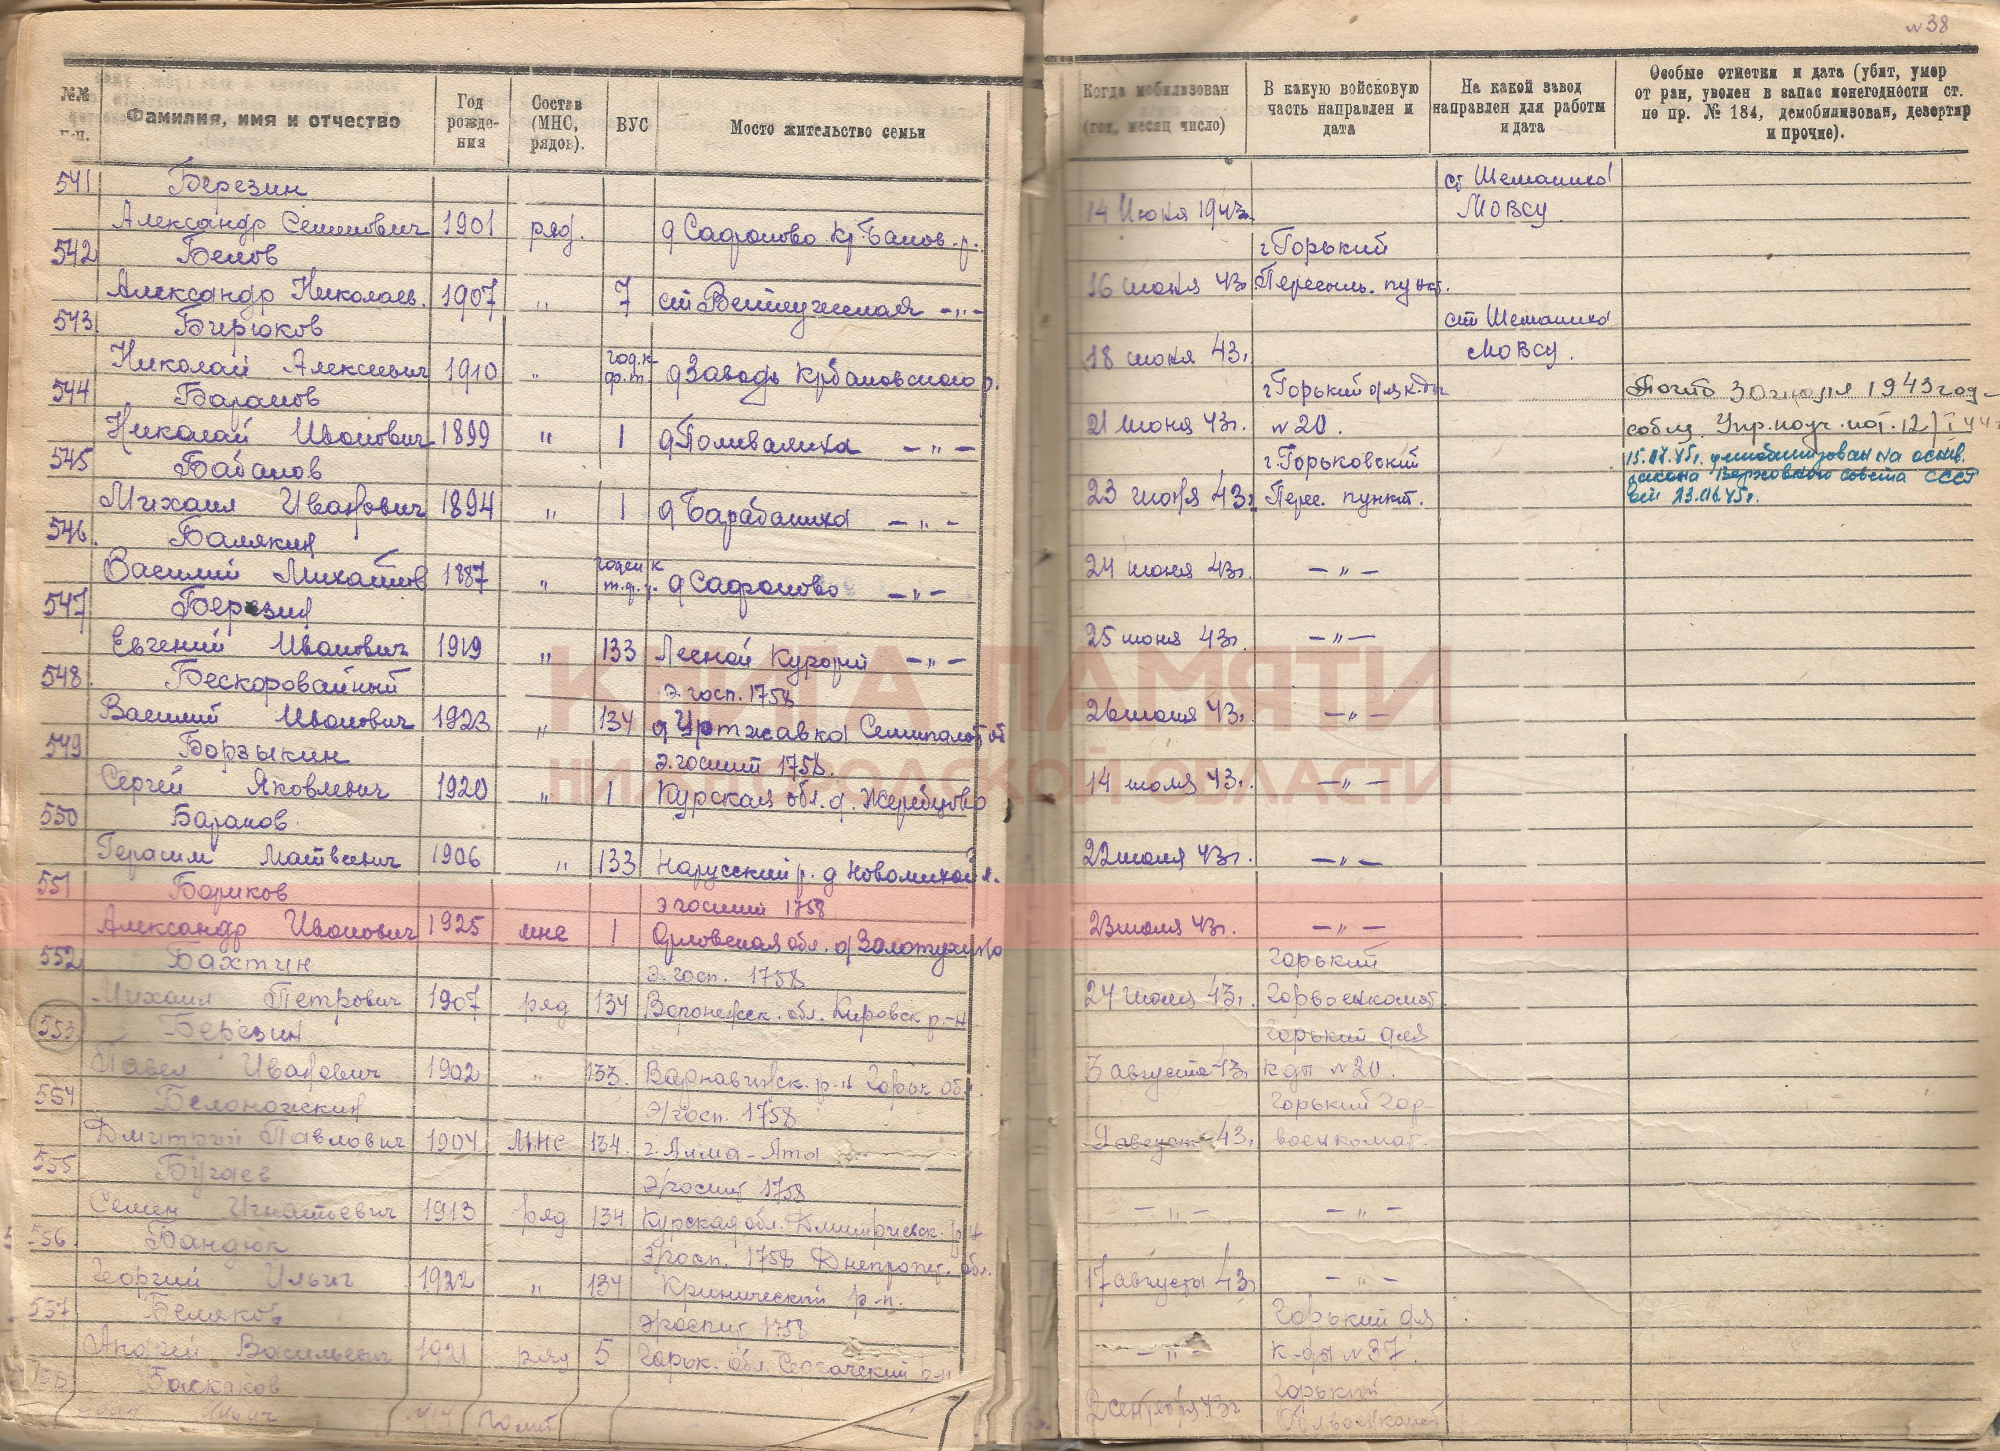 №№ п.п.
Фамилия, имя и отчество
Год рожде- ния
Состав (МНС, рядов).
ВУС
Мосто жительство семьи
541 Березин
Александр Семенович 1901 ряд. д Сафоново Кр. Баков. р.
542 Белов
Александр Николаев. 1907 „ 7 ст Ветлужская – „ –
543 Бирюков
Николай Алексеевич 1910 „ год. к ф.т. д Заводь Крбаковского р.
544 Баранов
Николай Иванович 1899 „ 1 д Поливаниха – „ –
545 Бабанов
Михаил Иванович 1894 „ 1 д Барабаниха – „ –
546. Балякин
Василий Михайлов 1887 „ годен к т.ф.р. д Сафоново – „ –
547 Березин
Евгений Иванович 1919 „ 133 Лесной Курорт – „ –
548. Бескоровайный Э. госп. 1758
Василий Иванович 1923 „ 134 д Уртжавка Семипалат об
549 Борзыкин Э. госпит 1758.
Сергей Яковлевич 1920 „ 1 Курская обл. д. Жеребцово
550 Баранов
Герасим Матвеевич 1906 „ 133 Нарусский р. д Новомихайл.
551 Бориков Э госпит 1758
Александр Иванович 1925 мнс 1 Орловская обл. д Золотухино
552 Бахтин Э. госп. 1758
Михаил Петрович 1907 ряд 134 Воронежск. обл. Кировск р-н
553 Березин
Павел Иванович 1902 „ 133. Варнавинск. р-н Горьк обл.
554 Белоножскин Э/госп. 1758
Дмитрий Павлович 1904 МНС 134. г. Алма-Ата
555 Бугаев Э/госпит 1758
Семен Игнатьевич 1913 ряд 134 Курская обл. Дмитриевск. р-н
556 Бандюк Э/госп. 1758 Днепропет. обл.
Георгий Ильич 1922 „ 134 Кринический р-н.
557 Беляков Э/госпит 1758
Андрей Васильевич 1921 ряд 5 Горьк. обл. Сергачский р-н
558 Баскаков
Иван Ильич
№38
Когда мобилизован (год, месяц число)
В какую войсковую часть направлен и дата
На какой завод направлен для работы и дата
Особые отметки и дата (убит, умер от ран, уволен в запас понегодности ст. по пр. № 184, демобилизован, дезертир и прочие).
ст Шеманиха
14 Июня 1943г. МОВСУ.
г Горький
16 июня 43г Пересыль. пункт.
ст Шеманиха
18 июня 43г. МОВСУ.
г Горький для к-ды
21 июня 43г. №20.
г. Горьковский
23 июня 43г. Перес. пункт.
15.07.45г. демобилизован на основ.
закона Верховного совета СССР
от 23.06.45г.
24 июня 43г. – „ –
25 июня 43г. – „ –
26 июня 43г. – „ –
14 июля 43г. – „ –
22 июля 43г. – „ –
23 июля 43г. – „ –
Горький
24 июля 43г. Горвоенкомат.
Горький для
3 августа 43г к-ды №20.
Горький Гор-
9 август 43г военкомат.
– „ – – „ –
17 августа 43г – „ –
Горький для
– „ – к-ды №37.
Горький
2 сентября 43г Облвоенкомат
КНИГА ПАМЯТИ
НИЖЕГОРОДСКОЙ ОБЛАСТИ